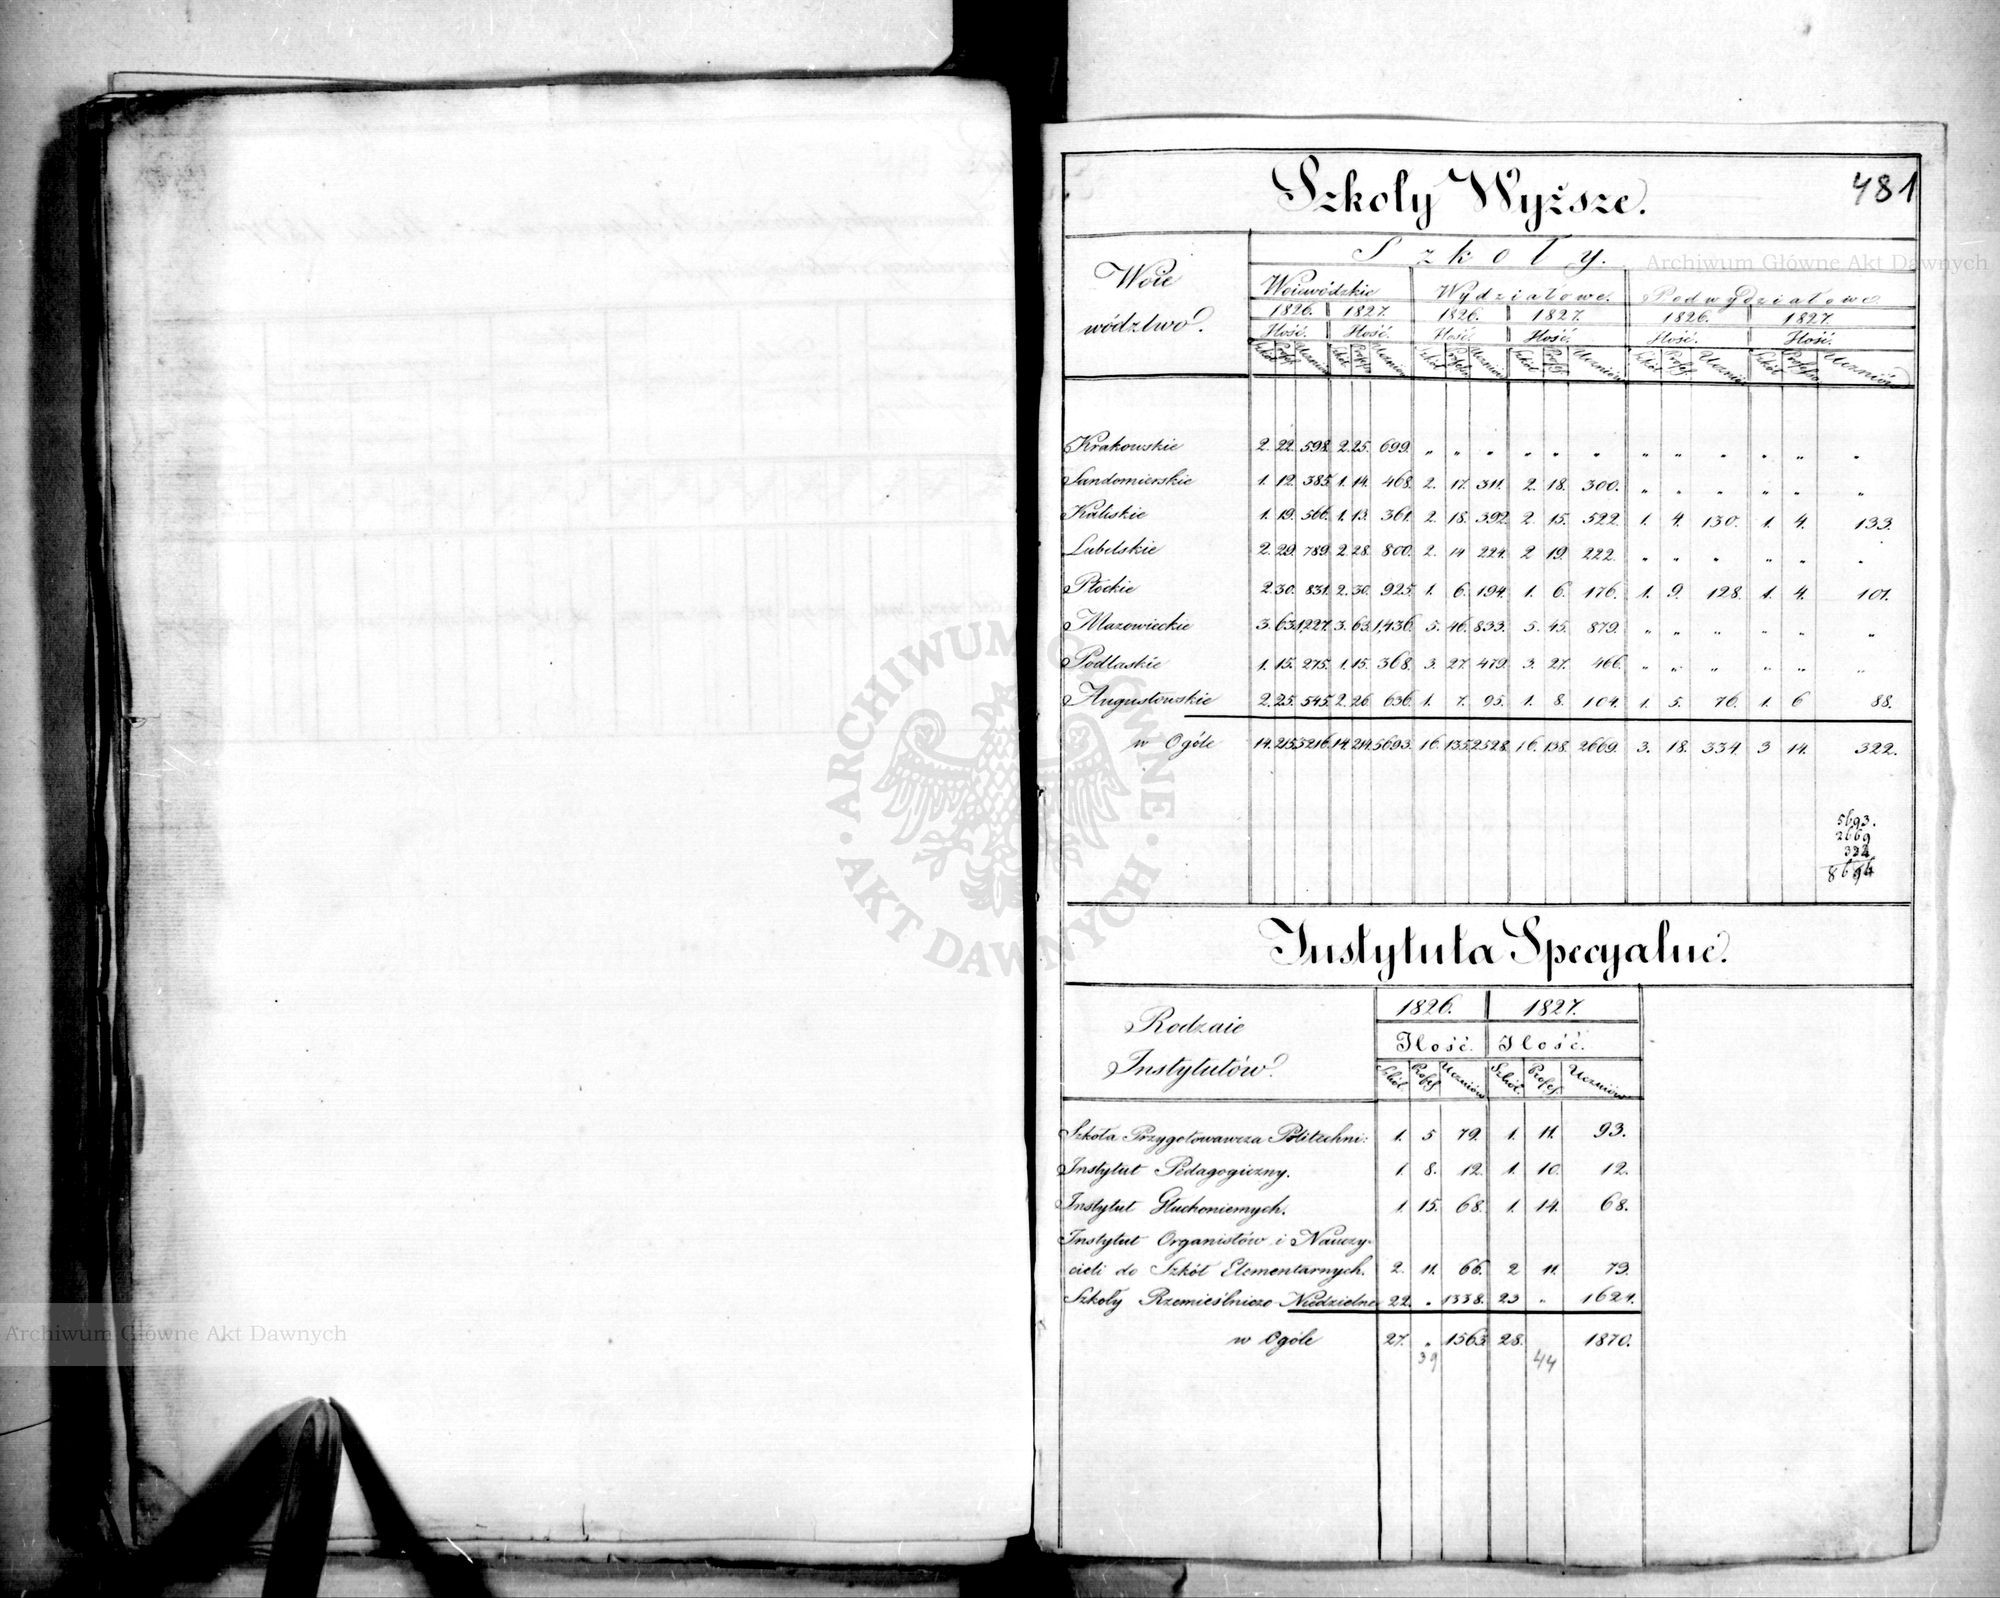 481
Szkoły Wyższe.
Woie
wództwo.
Szkoły.
Woiewódzkie Wydziałowe. Podwydziałowe.
1826. 1827. 1826. 1827. 1826. 1827.
Ilość. Ilość. Ilość. Ilość. Ilość. Ilość.
Szkół Profes. Uczniów Szkół Profes. Uczniów Szkół Profes. Uczniów Szkół Profes. Uczniów Szkół Profes. Uczniów Szkół Professo. Uczniów
Krakowskie 2. 22. 598. 2. 25. 699. „ „ „ „ „ „ „ „ „ „ „ „
Sandomierskie 1. 12. 385. 1. 14. 468. 2. 17. 311. 2. 18. 300. „ „ „ „ „ „
Kaliskie 1. 19. 566. 1. 13. 361. 2. 18. 392. 2. 15. 522. 1. 4. 130. 1. 4. 133.
Lubelskie 2. 29. 789. 2. 28. 800. 2. 14 224. 2 19. 222. „ „ „ „ „ „
Płockie 2. 30. 831. 2. 30. 925. 1. 6. 194. 1. 6. 176. 1. 9. 128. 1. 4. 101.
Mazowieckie 3. 63. 1,227. 3. 63. 1,436. 5. 46. 833. 5. 45. 879. „ „ „ „ „ „
Podlaskie 1. 15. 275. 1. 15. 368. 3. 27. 479. 3. 27. 466. „ „ „ „ „ „
Augustowskie 2. 25. 545. 2. 26. 636. 1. 7. 95. 1. 8. 104. 1. 5. 76. 1. 6 88.
w Ogóle 14. 215. 5216. 14. 214. 5693. 16. 135. 2528. 16. 138. 2669. 3. 18. 334. 3 14. 322.
5693.
2669
322
8684
Instytuta Specyalne.
Rodzaie
Instytutów.
1826. 1827.
Ilość. Ilość.
Szkół. Profes. Uczniów Szkół. Profes. Uczniów
Szkoła Przygotowawcza Politechni: 1. 5 79. 1. 11. 93.
Instytut Pedagogiczny. 1. 8. 12. 1. 10. 12.
Instytut Głuchoniemych. 1. 15. 68. 1. 14. 68.
Instytut Organistów i Nauczy-
cieli do Szkół Elementarnych. 2. 11. 66. 2 11. 73.
Szkoły Rzemieślniczo Niedzielne 22. „ 1338. 23 „ 1624.
w Ogóle 27. „ 1563 28. 1870.
39 44
Archiwum Główne Akt Dawnych
ARCHIWUM GŁÓWNE · AKT DAWNYCH ·
Archiwum Główne Akt Dawnych